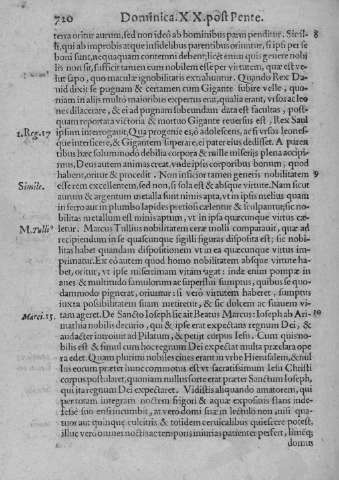 720 Dominica. XX. post Pente.
terra oritur aurum, sed non ideò ab hominibus parui penditur. Sic il- 8
li, qui ab improbis atque infidelibus parentibus oriuntur, si ipsi per se
boni sunt, nequaquam contemni debent, licèt enim quis genere nobi
lis non sit, sufficit tamen cum nobilem esse per virtutem, quæ est ve-
lut sapo, quo maculæ ignobilitatis extrahuntur. Quando Rex Da-
uid dixit se pugnam & certamen cum Gigante subire velle, quo-
niam in alijs multò maioribus expertus erat, qualia erant, vrsos ac leo
nes dilacerare, & ei ad pugnam subeundam data est facultas, post-
quam reportata victoria & mortuo Gigante reuersus est, Rex Saul
1. Reg. 17 ipsum interrogauit, Qua progenie es, ò adolescens, ac si vrsos leones-
que interficere, & Gigantem superare, ei pater eius dedisset. A paren
tibus hæc solummodo debilia corpora & mille miserijs plena accipi-
mus, Deus autem animas creat, vnde ipsis corporibus bonum, quod
habent, oritur & procedit. Non inficior tamen generis nobilitatem 9
esse rem excellentem, sed non, si sola est & absque virtute. Nam sicut
Simile. aurum & argentum metalla sunt nimis apta, vt in ipsis melius quàm
in ferro aut in plumbo lapides pretiosi cælentur & sculpantur, sic no-
bilitas metallum est nimis aptum, vt in ipsa quæcunque virtus cæ-
M. Tulli⁹ letur. Marcus Tullius nobilitatem ceræ molli comparauit, quæ ad
recipiendum in se quascunque sigilli figuras disposita est; sic nobi-
litas habet quandam dispositionem vt in ea quæcunque virtus im-
primatur. Ex eò autem quod homo nobilitatem absque virtute ha-
bet, oritur, vt ipse miserrimam vitam agat: inde enim pompæ in
anes & multitudo famulorum ac superflui sumptus, quibus se quo-
dammodo pignerat, oriuntur: is verò virtutem haberet, sumptus
iuxta possibilitatem suam metiretur, & sic dolcem ac suauem vi-
Marci. 15. tam ageret. De Sancto Ioseph sic ait Beatus Marcus: Ioseph ab Ari- 10
mathia nobilis decurio, qui & ipse erat expectans regnum Dei, &
audacter introiuit ad Pilatum, & petijt corpus Iesu. Cum quis no-
bilis est & simul cum hoc regnum Dei expectat multa præclara ope
ra edet. Quàm plurimi nobiles ciues erant in vrbe Hierusalem, & nul
lus eorum præter hunc commotus est vt sacratissimum Iesu Christi
corpus postularet, quoniam nullus forte erat præter Sanctum Ioseph,
qui ita regnum Dei expectaret. Vidistis aliquando amatorem, qui
per totam integram noctem frigori & aquæ expositus stans inde-
fessè suo ensi incumbit, at verò domi suæ in lectulo non, nisi qua-
tuor aut quinque culcitris & totidem ceruicalibus quiescere potest,
illuc verò omnes noctis ac temporis iniurias patienter perfert, limẽq;
domus